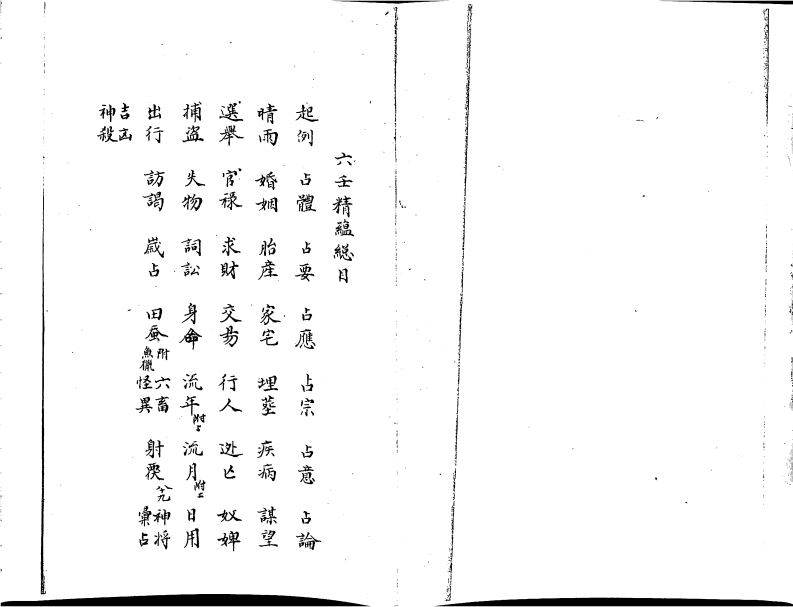 六壬精蘊総目
起例 占體 占要 占應 占宗 占意 占論
晴雨 婚姻 胎産 家宅 埋塟 疾病 謀望
選舉 官禄 求財 交昜 行人 逃亡 奴婢
捕盜 失物 詞訟 身命 流年附上 流月附上 日用
出行 訪謁 歲占 田蚕附魚獵 六畜怪異 射覆 神將彙占
吉凶神殺